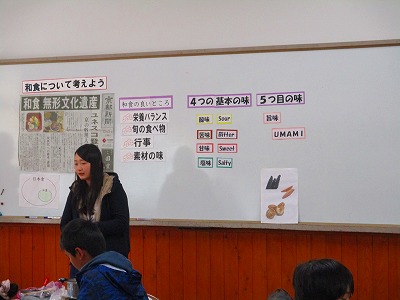 和食について考えよう
和食 無形文化遺産
京都新聞
ユネスコ登
日本食
和食の良いところ
栄養バランス
旬の食べ物
行事
素材の味
4つの 基本の味
酸味 Sour
苦味 Bitter
甘味 Sweet
塩味 Salty
5つ目の味
旨味
UMAMI